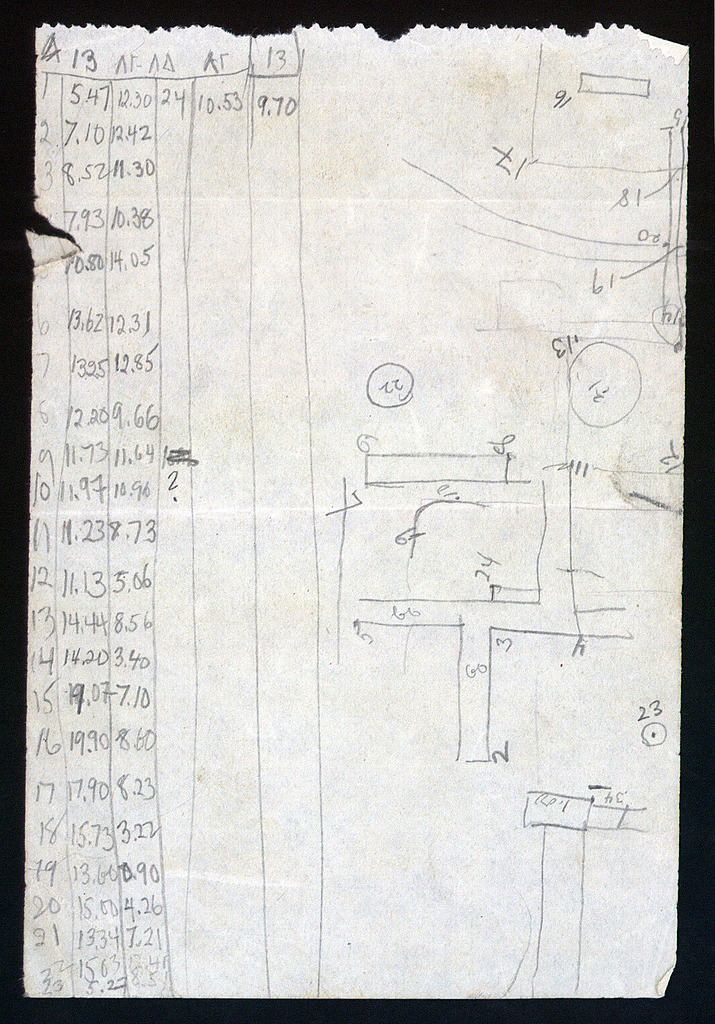 Α 13 ΑΓ ΑΔ ΑΓ 13
1 5.47 12.30 24 10.53 9.70
2 7.10 12.42
3 8.52 11.30
7.93 10.38
10.80 14.05
6 13.62 12.31
7 13.25 12.85
8 12.20 9.66
9 11.73 11.64
10 11.97 10.90
?
11 11.23 8.73
12 11.13 5.06
13 14.44 8.56
14 14.20 3.40
15 19.07 7.10
16 19.90 8.60
17 17.90 8.23
18 15.73 3.22
19 13.60 0.90
20 15.00 4.26
21 13.34 7.21
22 15.03 12.41
23 5.27
16
17
18
20
19
14
13
21
22
12
11
24
60
3
4
60
2
23